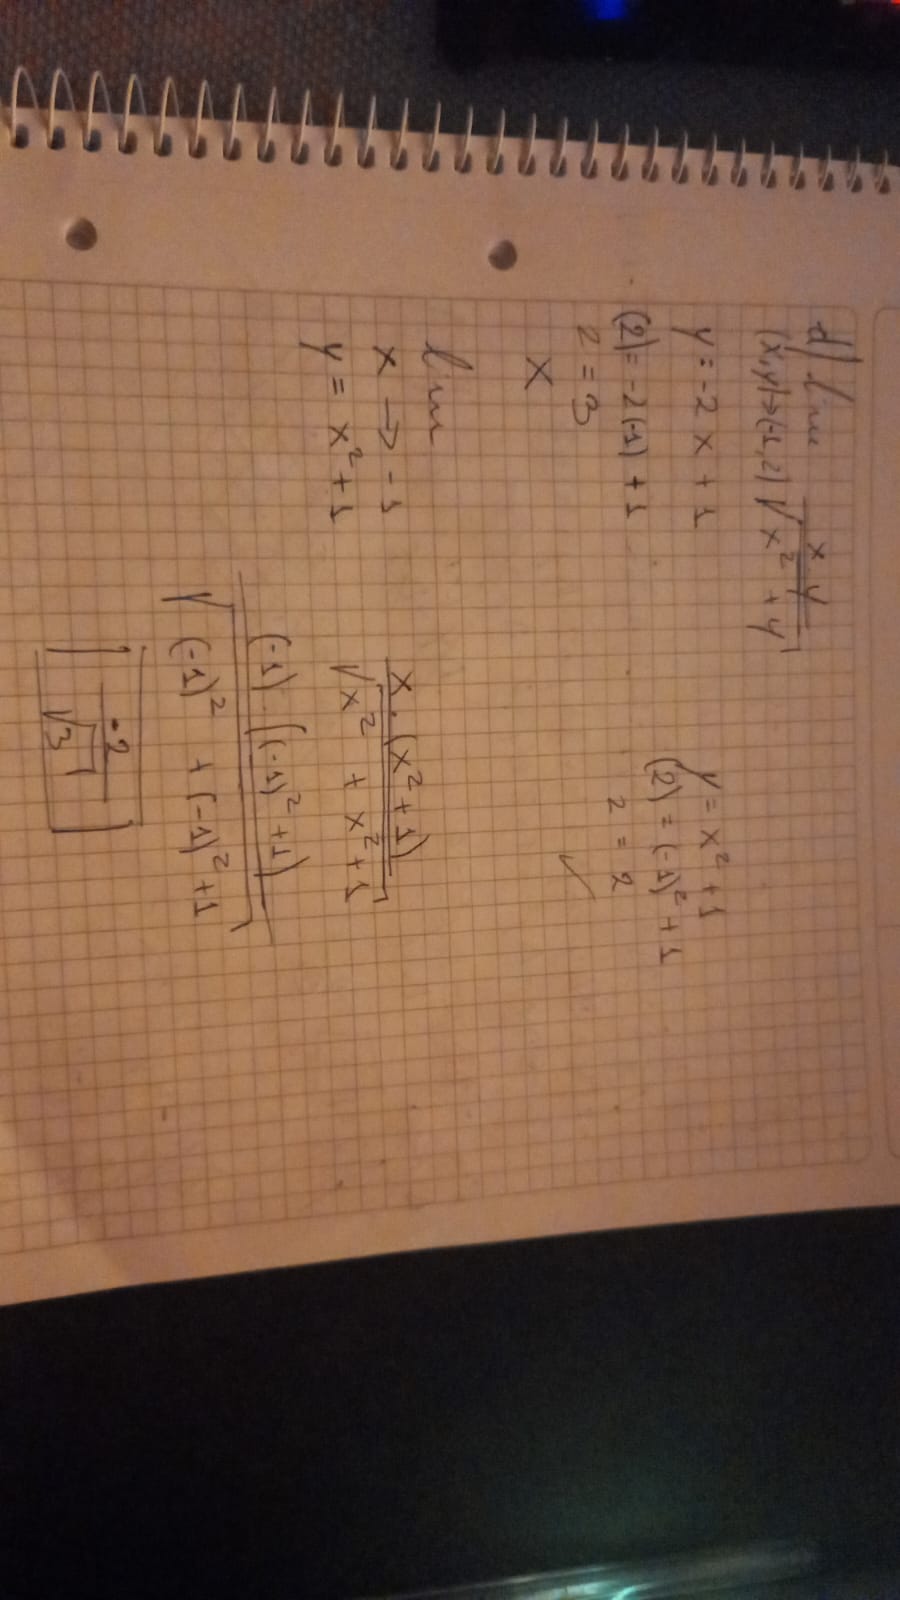 d) lim xy
(x,y)→(-1,2) √x² + y
y = -2x + 1
(2) = -2(-1) + 1
2 = 3
X
y = x² + 1
(2) = (-1)² + 1
2 = 2
✓
lim x · (x² + 1)
x → -1 √x² + x² + 1
y = x² + 1
(-1) · ((-1)² + 1)
√(-1)² + (-1)² + 1
-2
√3